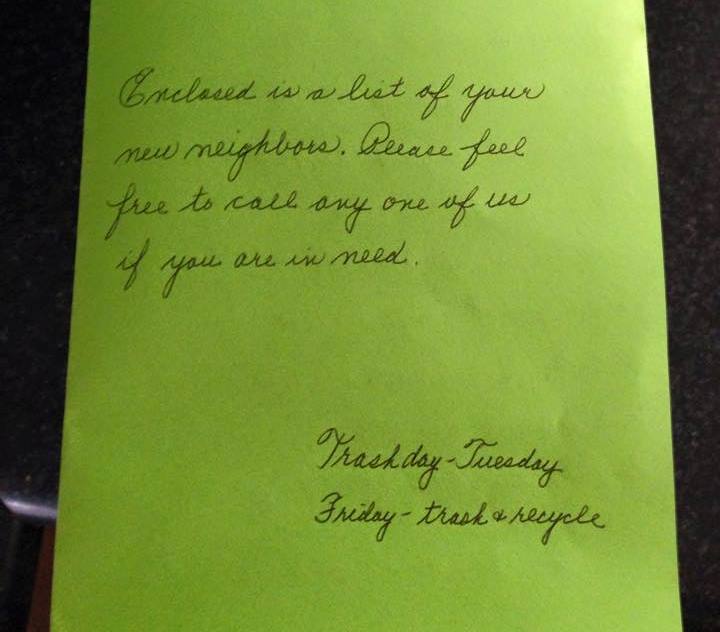 Enclosed is a list of your
new neighbors. Please feel
free to call any one of us
if you are in need.
Trashday-Tuesday
Friday- trash & recycle